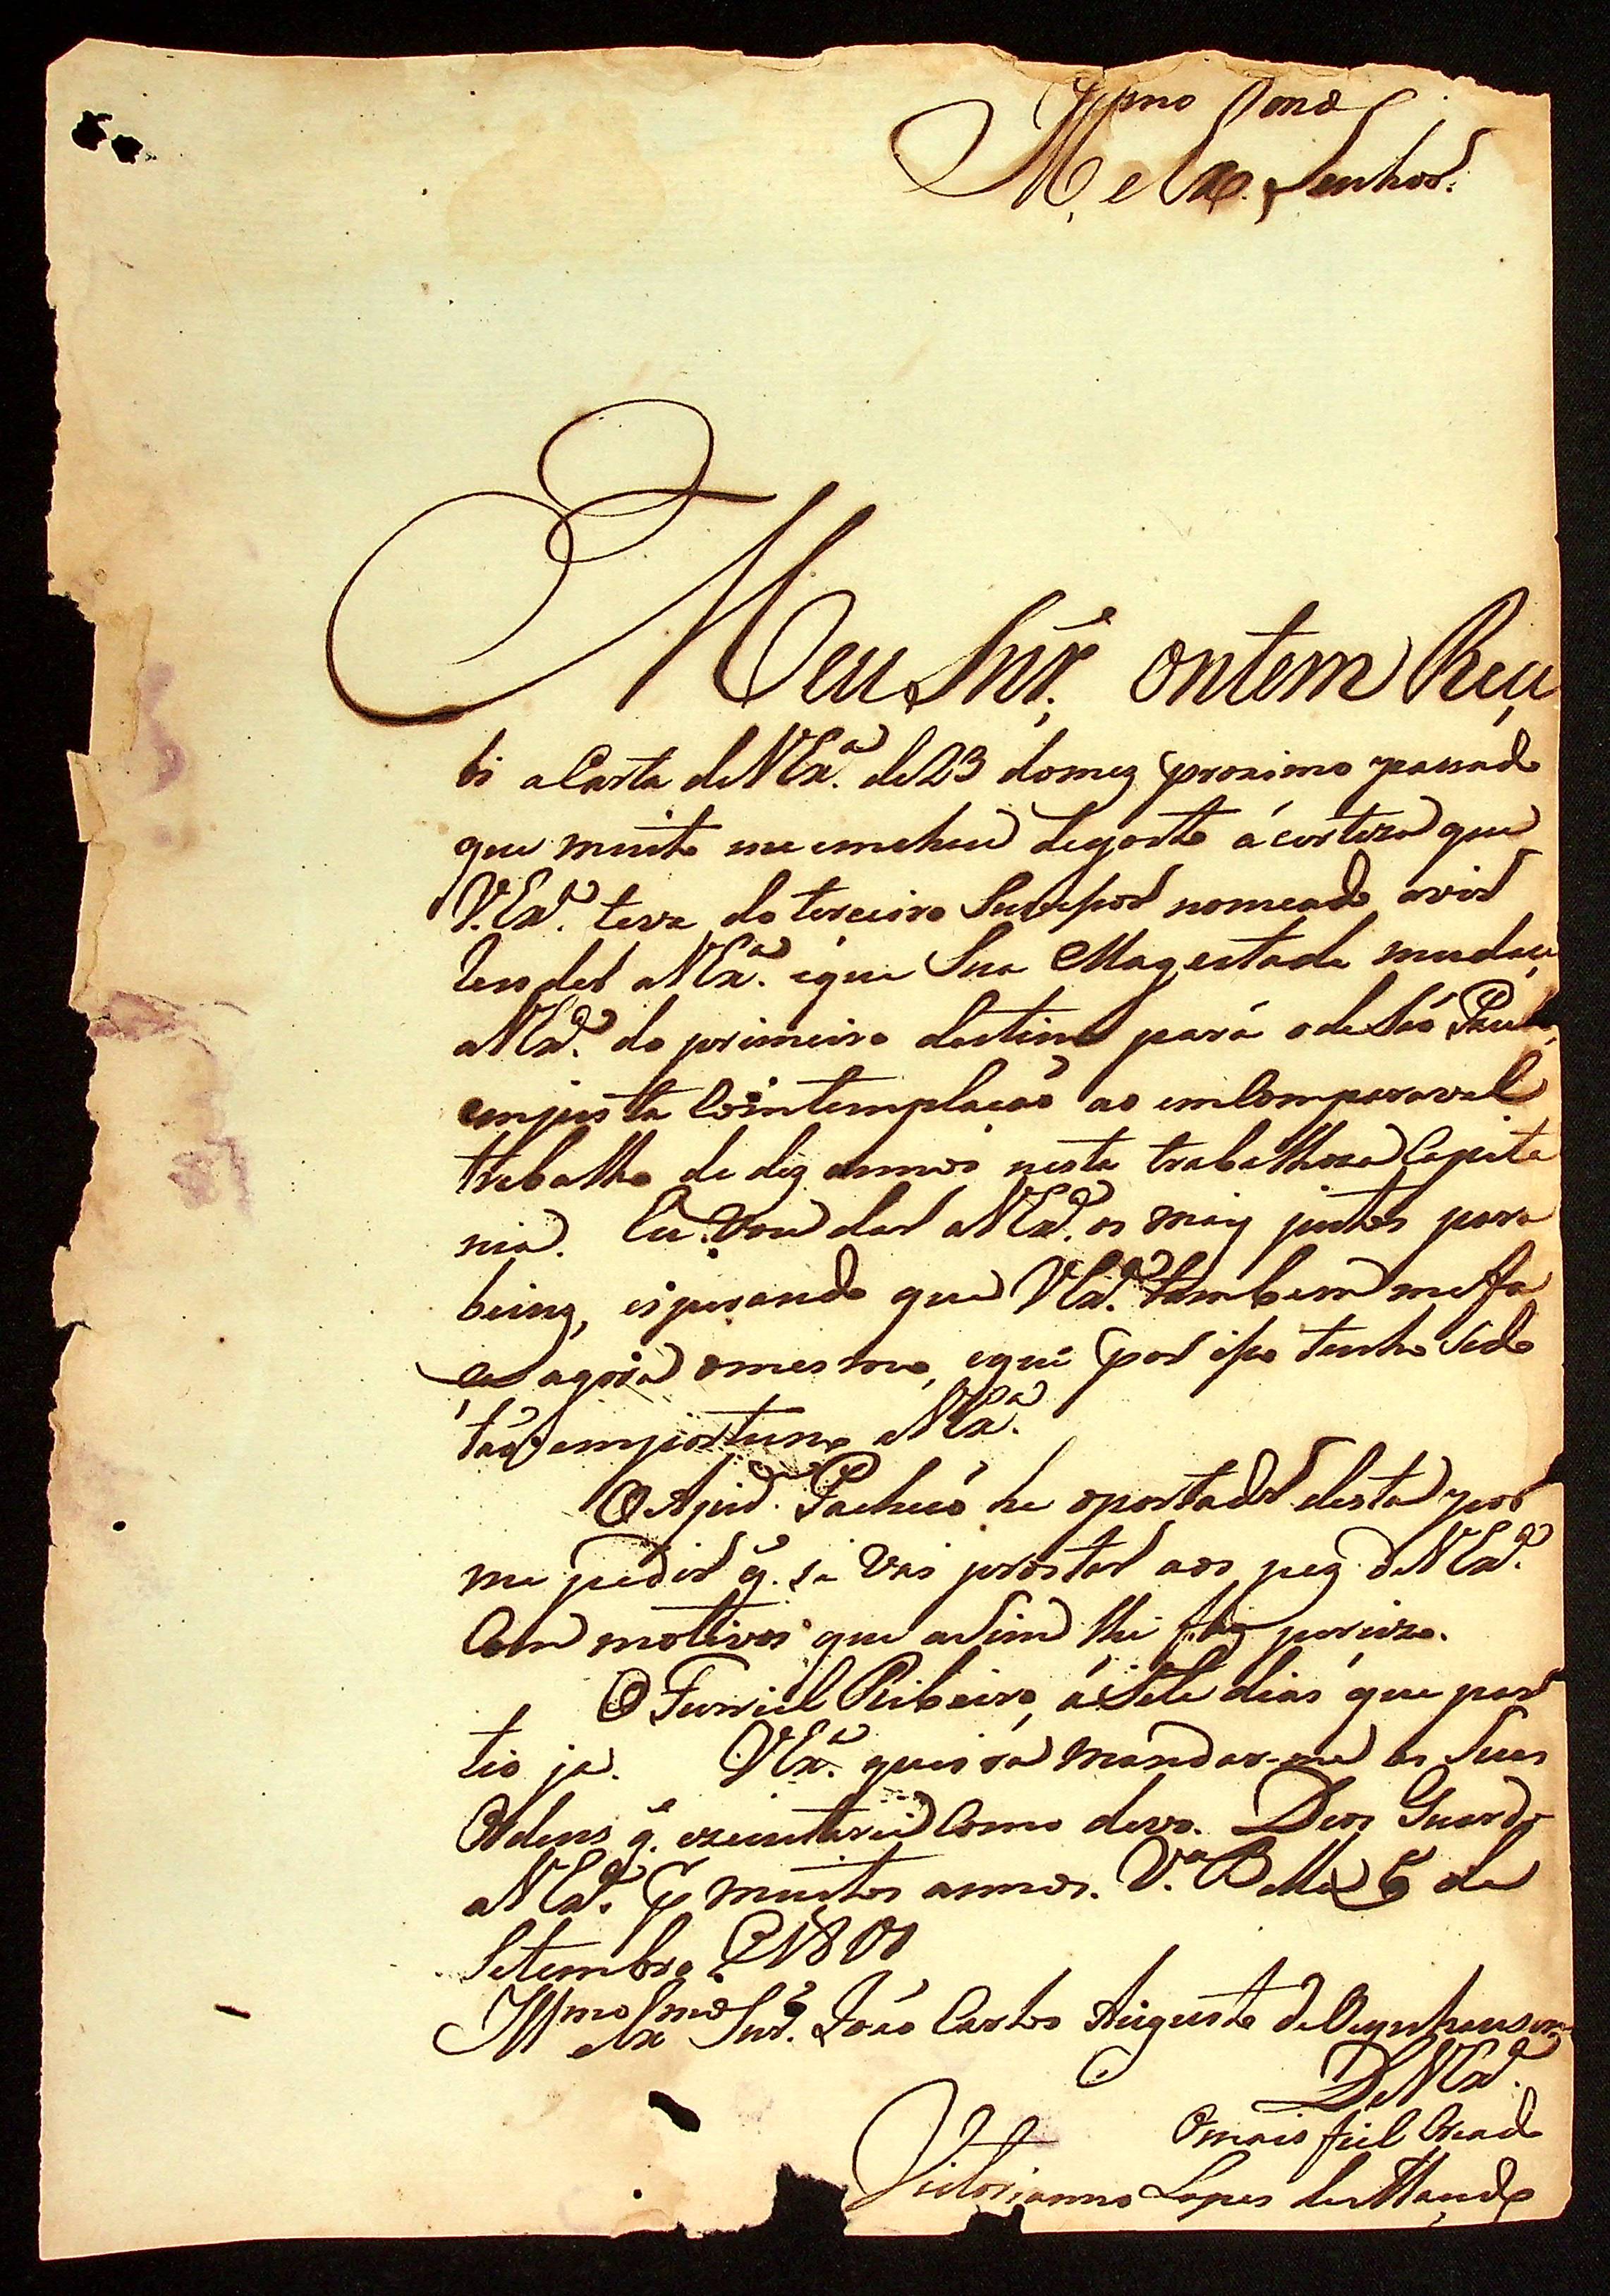 Illmo e Exmo Senhor.
Meu Snr̃. ontem Reçe
bi a Carta de VExa. de 23 do mez proximo passado
que muito me encheu de gosto á certeza que
V.Exa. teve do terceiro Sucessor nomeado a vir
Render a VExa. e que Sua Magestade mudaçe
a VExa. do primeiro destino pará o de Saõ Paulo,
em justa Comtemplaçaõ ao emComparavel
trabalho de dez annos nesta trabalhoza Capita
nia. Eu vou dar a VExa. os maiz justos para
beinz, esperando que VExa. tambem me fa
ça agora o mesmo, e que por isso tenho sido
taõ emportuno a VExa.
O Pacheco he o portador desta por
me pedir q̃. se vai prostar aos pez de VExa.
Com motivos que asim lhe faz percizo.
O Furriel Ribeiro, á Sete dias que par
tio ja. VExa. queira mandar-me as Suas
Ordens q̃. executarei Como devo. Deos Guarde
a VExa. por muitos annos. Va. Bella 6 de
Setembro de 180
Illmo e Exmo Snr̃. Joaõ Carlos Augusto de Oeynhausen
De VExa.
O mais fiel Criado
Victorianno Lopes de Maçedo